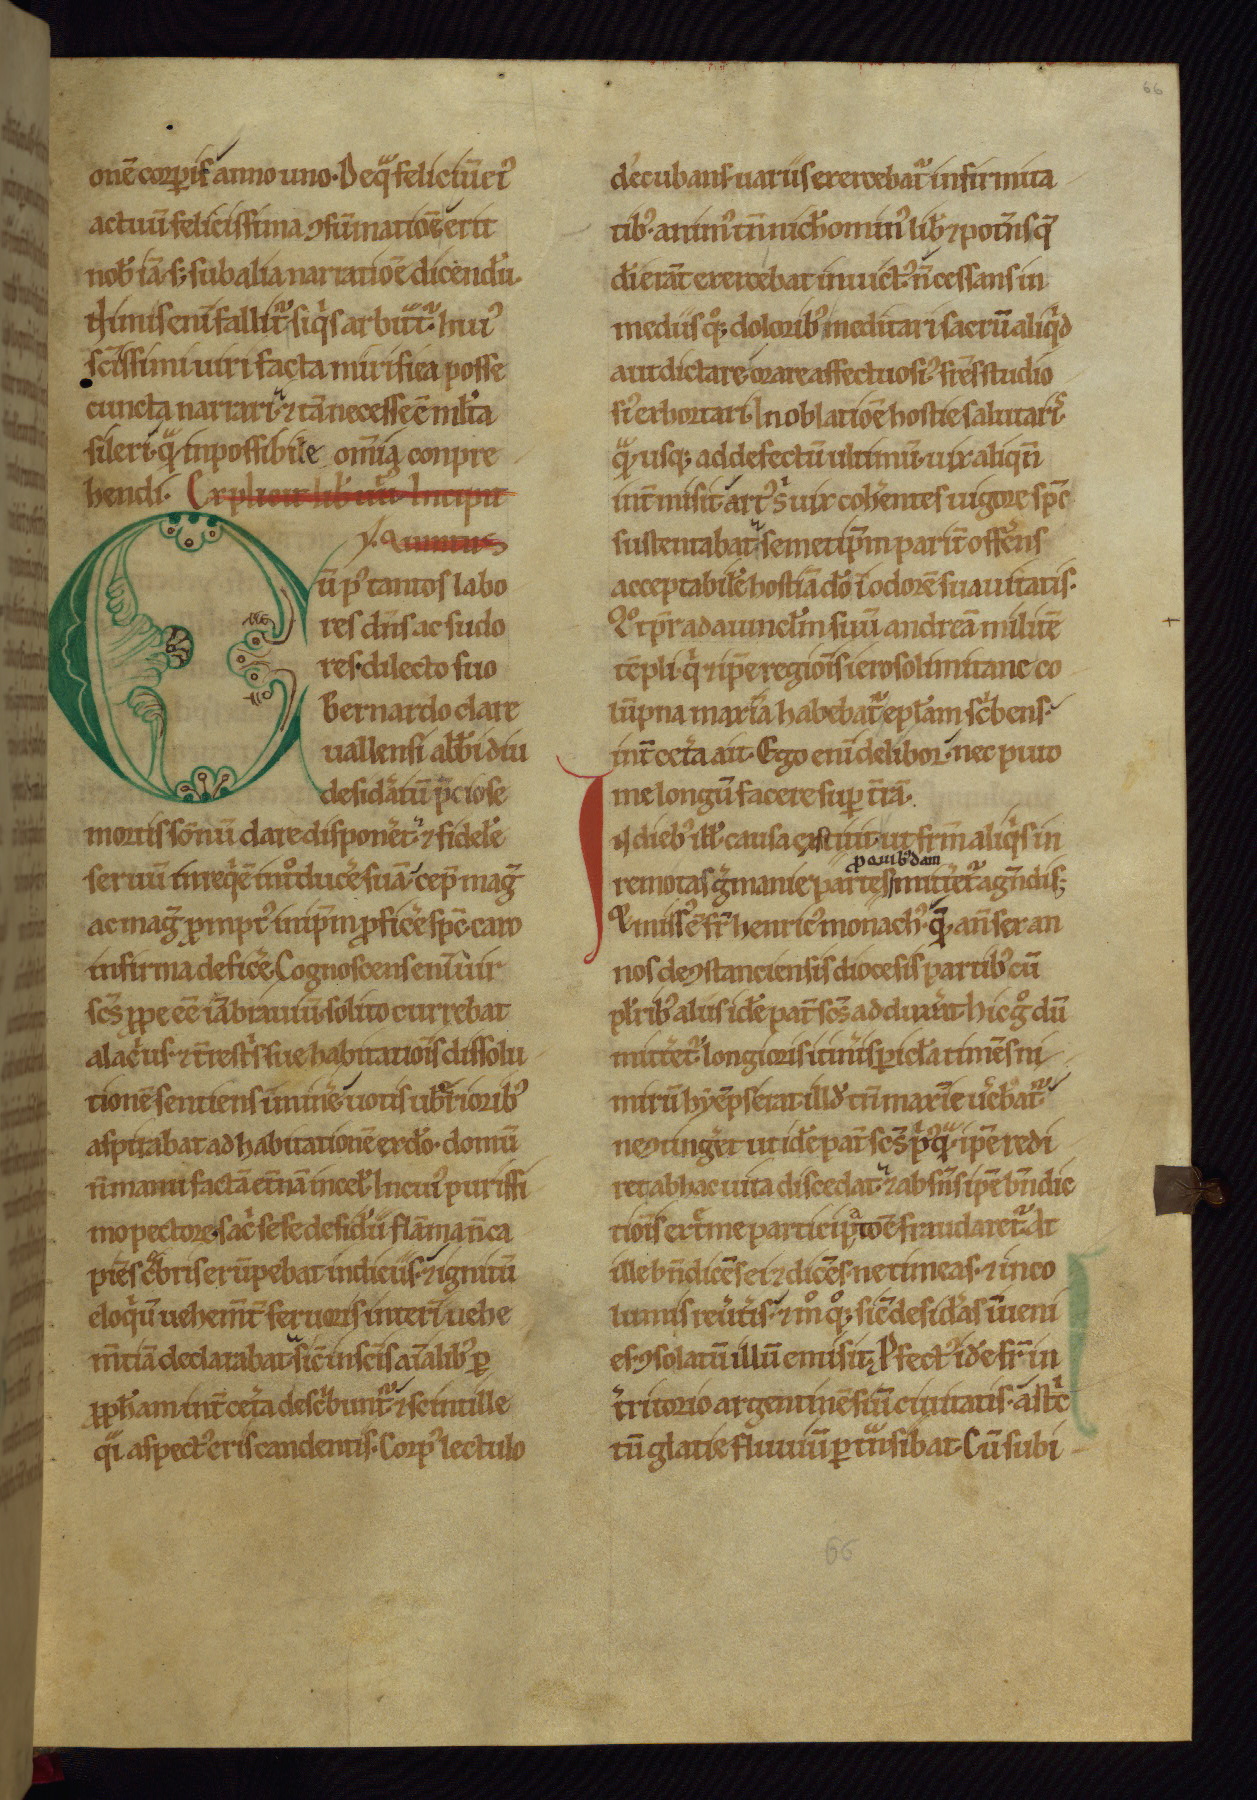 66
onē corꝑis anno uno. De qͣ feliciū eiꝰ
actuū felicissima ꝯsūmatiōe erit
nob̓ iā. s; sub alia narratiōe dicend̓u.
Nimis enī fallit̃. siq̓s arbitͣt̃. huiꝰ
scīssimi uiri facta mirifica posse
cuncta narrari. ⁊ tā necesse ē ml̓ta
sileri. qͣ inpossibile omīa conpre
hendi. Explicit lib̓ Incipit
Quintus
ū pꝰ tantos labo
res dn̄s ac sudo
res. dilecto suo
Bernardo clare
uallensi abb̓i diu
desid̓atū p̄ciose
mortis sōnū dare disponer̄t. ⁊ fidelē
seruū in req̓ē int̓ducē suā. cep̄ mag̃
ac mag̃ ꝓmptꝰ in ip̄m ꝓficē spc̄. caro
infirma deficē. Cognoscens enī uir
scs̄ ꝓpe eē iā brauiū. solito currebat
alac̓us. ⁊ t̄rest̓s sue habitatiōis dissolu
tionē sentiens īminē. uotis ub̓rioribꝰ
aspirabat ad habitationē ex do̓. domū
n̄ manu factā et̄nā in cel̓. In cuiꝰ purissi
mo pectore. sac̓ sese desid̓ii flāma n̄ ca
piēs c̓bris erūpebat indiciis. ⁊ ignitū
eloq̓ū uehemēt̄ feruoris interi uehe
m̄tiā declarabat. sic̄ in scīs aīalibꝰ ꝑ
ꝓph̓am int̄ cet̓a desc̓bunt̃. ⁊ scintille
qͣi aspectꝰ eris candentis. Corpꝰ lectulo
decubans uariis exercebat̃ infirmita
tibꝰ. animꝰ tn̄ nich̓ominꝰ lib̓ ⁊ potn̄s q̄
d̓i erāt exercebat inuictꝰ. n̄ cessans in
mediis q̊q; doloribꝰ meditari sacrū aliq̓d
aut dictare. orare affectuosiꝰ. fr̄s studio
siꝰ exhortari. In oblatiōe hostie salutaris.
qͣ usq; ad defectū ultimū. uix aliqn̄
int̄misit. artꝰs uix coh̓entes uigore spc̄
sustentabat. semetip̄m parit̄ offe̓ns
acceptabilē hostiā do̓ ī odorē suauitatis.
ad auuncl̓m suū andreā militē
tēpli. q̓ ⁊ ip̄e regiōis ierosolimitane co
lūpna maxīa habebat̃. epl̓am sc̓bens.
int̄ cet̓a ait. Ego enī delibor. nec puto
me longū facere suꝑ t̄rā.
is diebꝰ ill̓. causa extitit. ut fr̄m aliq̓s in
ꝓ quibꝰdam
remotas g̓manie partes mittet̃ agn̄dis;
missꝰ ē fr̄ henricꝰ monachꝰ. q̄ an̄ sex an
nos de ꝯstanciensis diocesis partibꝰ cū
pl̓ribꝰ aliis idē pat̄ scs̄ adduxit. hic g̊ dū
mittet̃. longioris itin̓is picl̓a timēs ni
mirū hyēps erat. illd̓ tn̄ maxīe u̓ebat̃
ne ꝯtinge̓t ut idē pat̄ scs̄ p̓q̄ ip̄e redi
ret ab hac uita discedat. ⁊ absn̄s ip̄e bn̄dic
tiōis ext̓me participatōe fraudaret̃. At
ille bn̄dicēs ei ⁊ dicēs. ne timeas. ⁊ inco
lumis reu̓t̓is. ⁊ m̊ q̊q; sic̄ desid̓as īueni
es. ꝯsolatū illū emisit. Pfectꝰ idē fr̄ in
t̓ritorio argentinēsiū ciuitatis. astc̓
tū glatie fluuiū ꝑ tͣnsibat. Cū subi
66